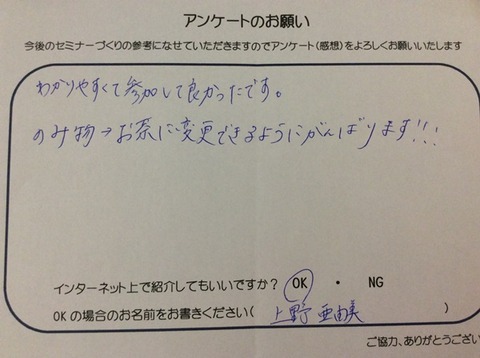 アンケートのお願い
今後のセミナーづくりの参考になせていただきますのでアンケート(感想)をよろしくお願いいたします
わかりやすくて参加して良かったです。
のみ物→お茶に変更できるようにがんばります!!!
インターネット上で紹介してもいいですか? OK ・ NG
OKの場合のお名前をお書きください( 上野 亜由美 )
ご協力、ありがとうござい